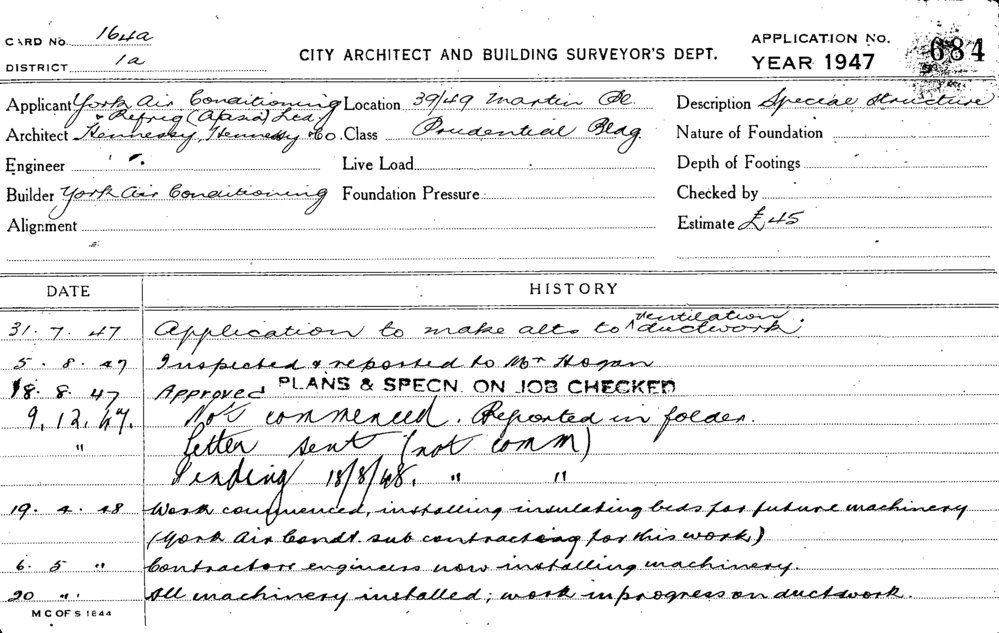 CARD No. 164a
DISTRICT 1a
CITY ARCHITECT AND BUILDING SURVEYOR'S DEPT.
APPLICATION NO. 684
YEAR 1947
Applicant York Air Conditioning
& Refrig (A/asia) Ltd
Location 39/49 Martin Pl.
Description Special Structure
Architect Hennessy, Hennessy & Co.
Class Prudential Bldg.
Nature of Foundation
Engineer "
Live Load
Depth of Footings
Builder York Air Conditioning
Foundation Pressure
Checked by
Alignment
Estimate £45
DATE HISTORY
31. 7. 47 Application to make alts to ventilation ductwork.
5. 8. 47 Inspected & reported to Mr Hogan
18. 8. 47 Approved PLANS & SPECN. ON JOB CHECKED
9. 12. 47. Not commenced. Reported in folder.
" Letter sent (not comm)
Pending 18/8/48. " "
19. 4. 48 Work commenced, installing insulating beds for future machinery
(York Air Condt. sub contracting for this work)
6. 5 " Contractors engineers now installing machinery.
20 ". All machinery installed; work in progress on ductwork.
M C OF S 1844